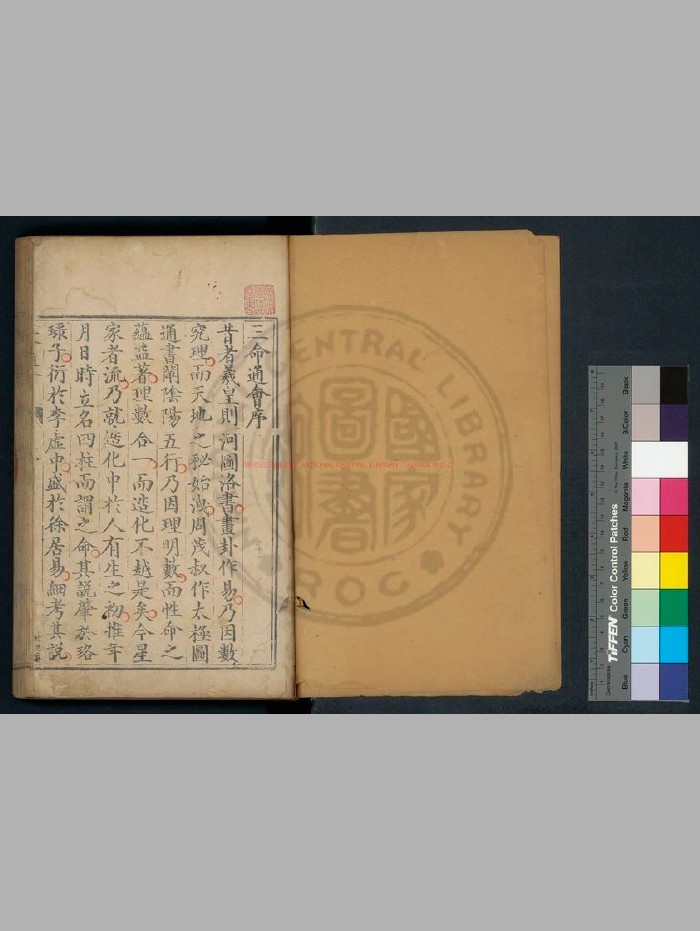 三命通會序
昔者羲皇則河圖洛書畫卦作易乃因數
究理而天地之秘始洩周茂叔作太極圖
通書闡陰陽五行乃因理明數而性命之
蘊益著理數合一而造化不越是矣今星
家者流乃就造化中於人有生之初推年
月日時立名四柱而謂之命其說肇於珞
琭子衍於李虛中盛於徐居易細考其說
CENTRAL LIBRARY
ROC
國家圖書館
Blue
Cyan
Green
Yellow
Red
Magenta
White
3/Color
Black
TIFFEN Color Control Patches